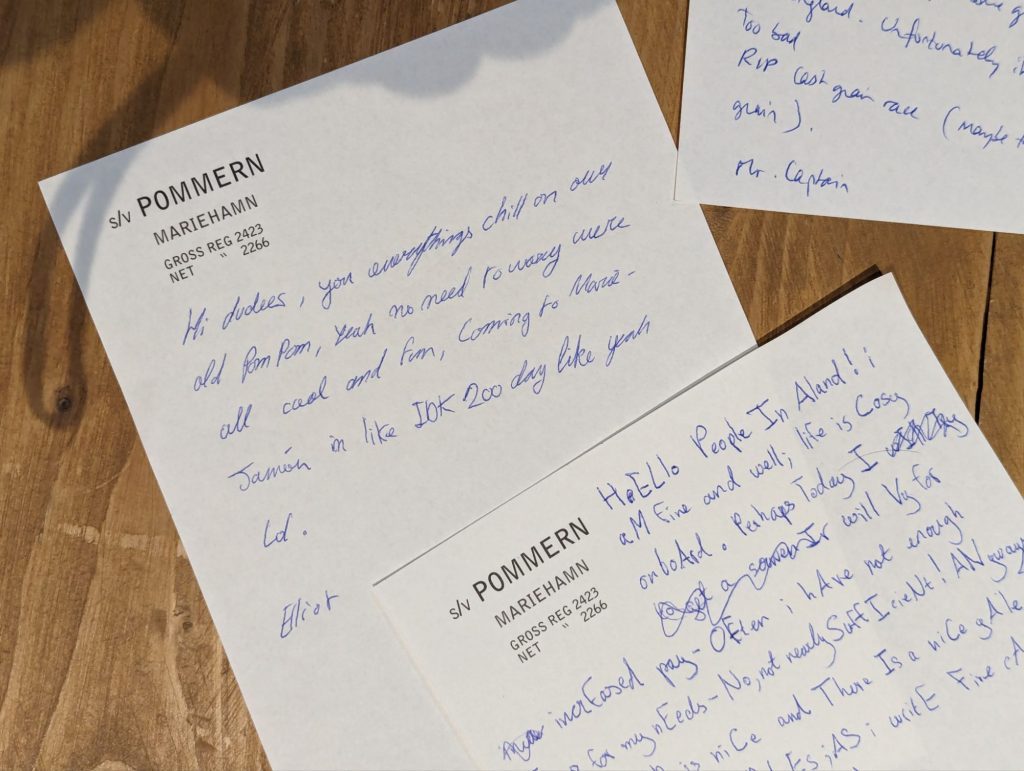 s/v POMMERN
MARIEHAMN
GROSS REG 2423
NET " 2266
Hi dudees, you everythings chill on our
old PomPom, Yeah no need to worry were
all cool and fun, Coming to Marie-
Jamön in like IDK 200 day like yeah
Ld.
Eliot
Unfortunately
Too bad
RIP Last grain race (Maybe
grain).
Mr. Captain
s/v POMMERN
MARIEHAMN
GROSS REG 2423
NET " 2266
HEllo People In Aland! i
aM Fine and well; life is Cosy
onboArd. Perhaps Today I
will Vy for
incrEased pay - OFten i hAve not enough
for my nEeds - No, not nearly SuffIcieNt! ANyway
is niCe and There Is a niCe gAle
iAS i writE Fine